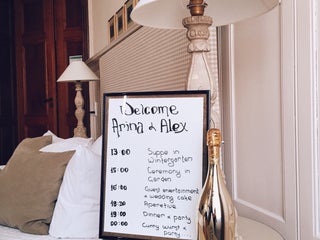 Welcome
Arina & Alex
13:00 Suppe in
Wintergarten
15:00 Ceremony in
Garden
16:00 Guest entertainment
& wedding cake
18:30 Aperetive
19:00 Dinner & party
00:00 Curry Wurst &
party